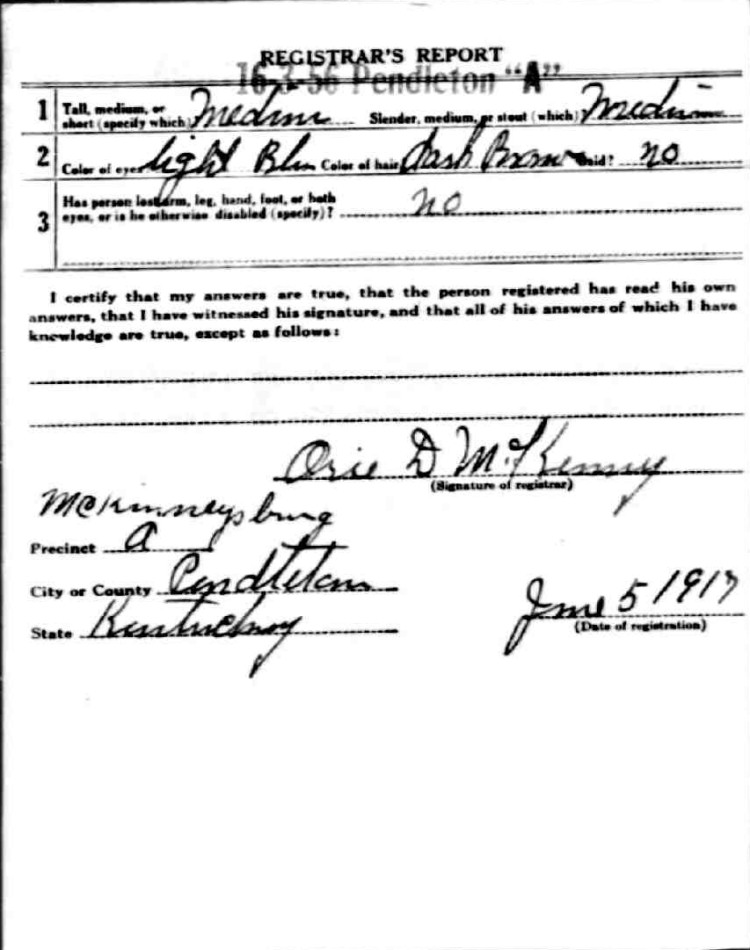 REGISTRAR'S REPORT
16-3-56 Pendleton "A"
1 Tall, medium, or short (specify which) Medium Slender, medium, or stout (which) Medium
2 Color of eyes light Blue Color of hair dark Brown Bald? no
3 Has person lost arm, leg, hand, foot, or both
eyes, or is he otherwise disabled (specify)? no
I certify that my answers are true, that the person registered has read his own
answers, that I have witnessed his signature, and that all of his answers of which I have
knowledge are true, except as follows:
Orie D McKenny
(Signature of registrar)
McKinneysburg
Precinct A
City or County Pendleton
State Kentucky
June 5 1917
(Date of registration)